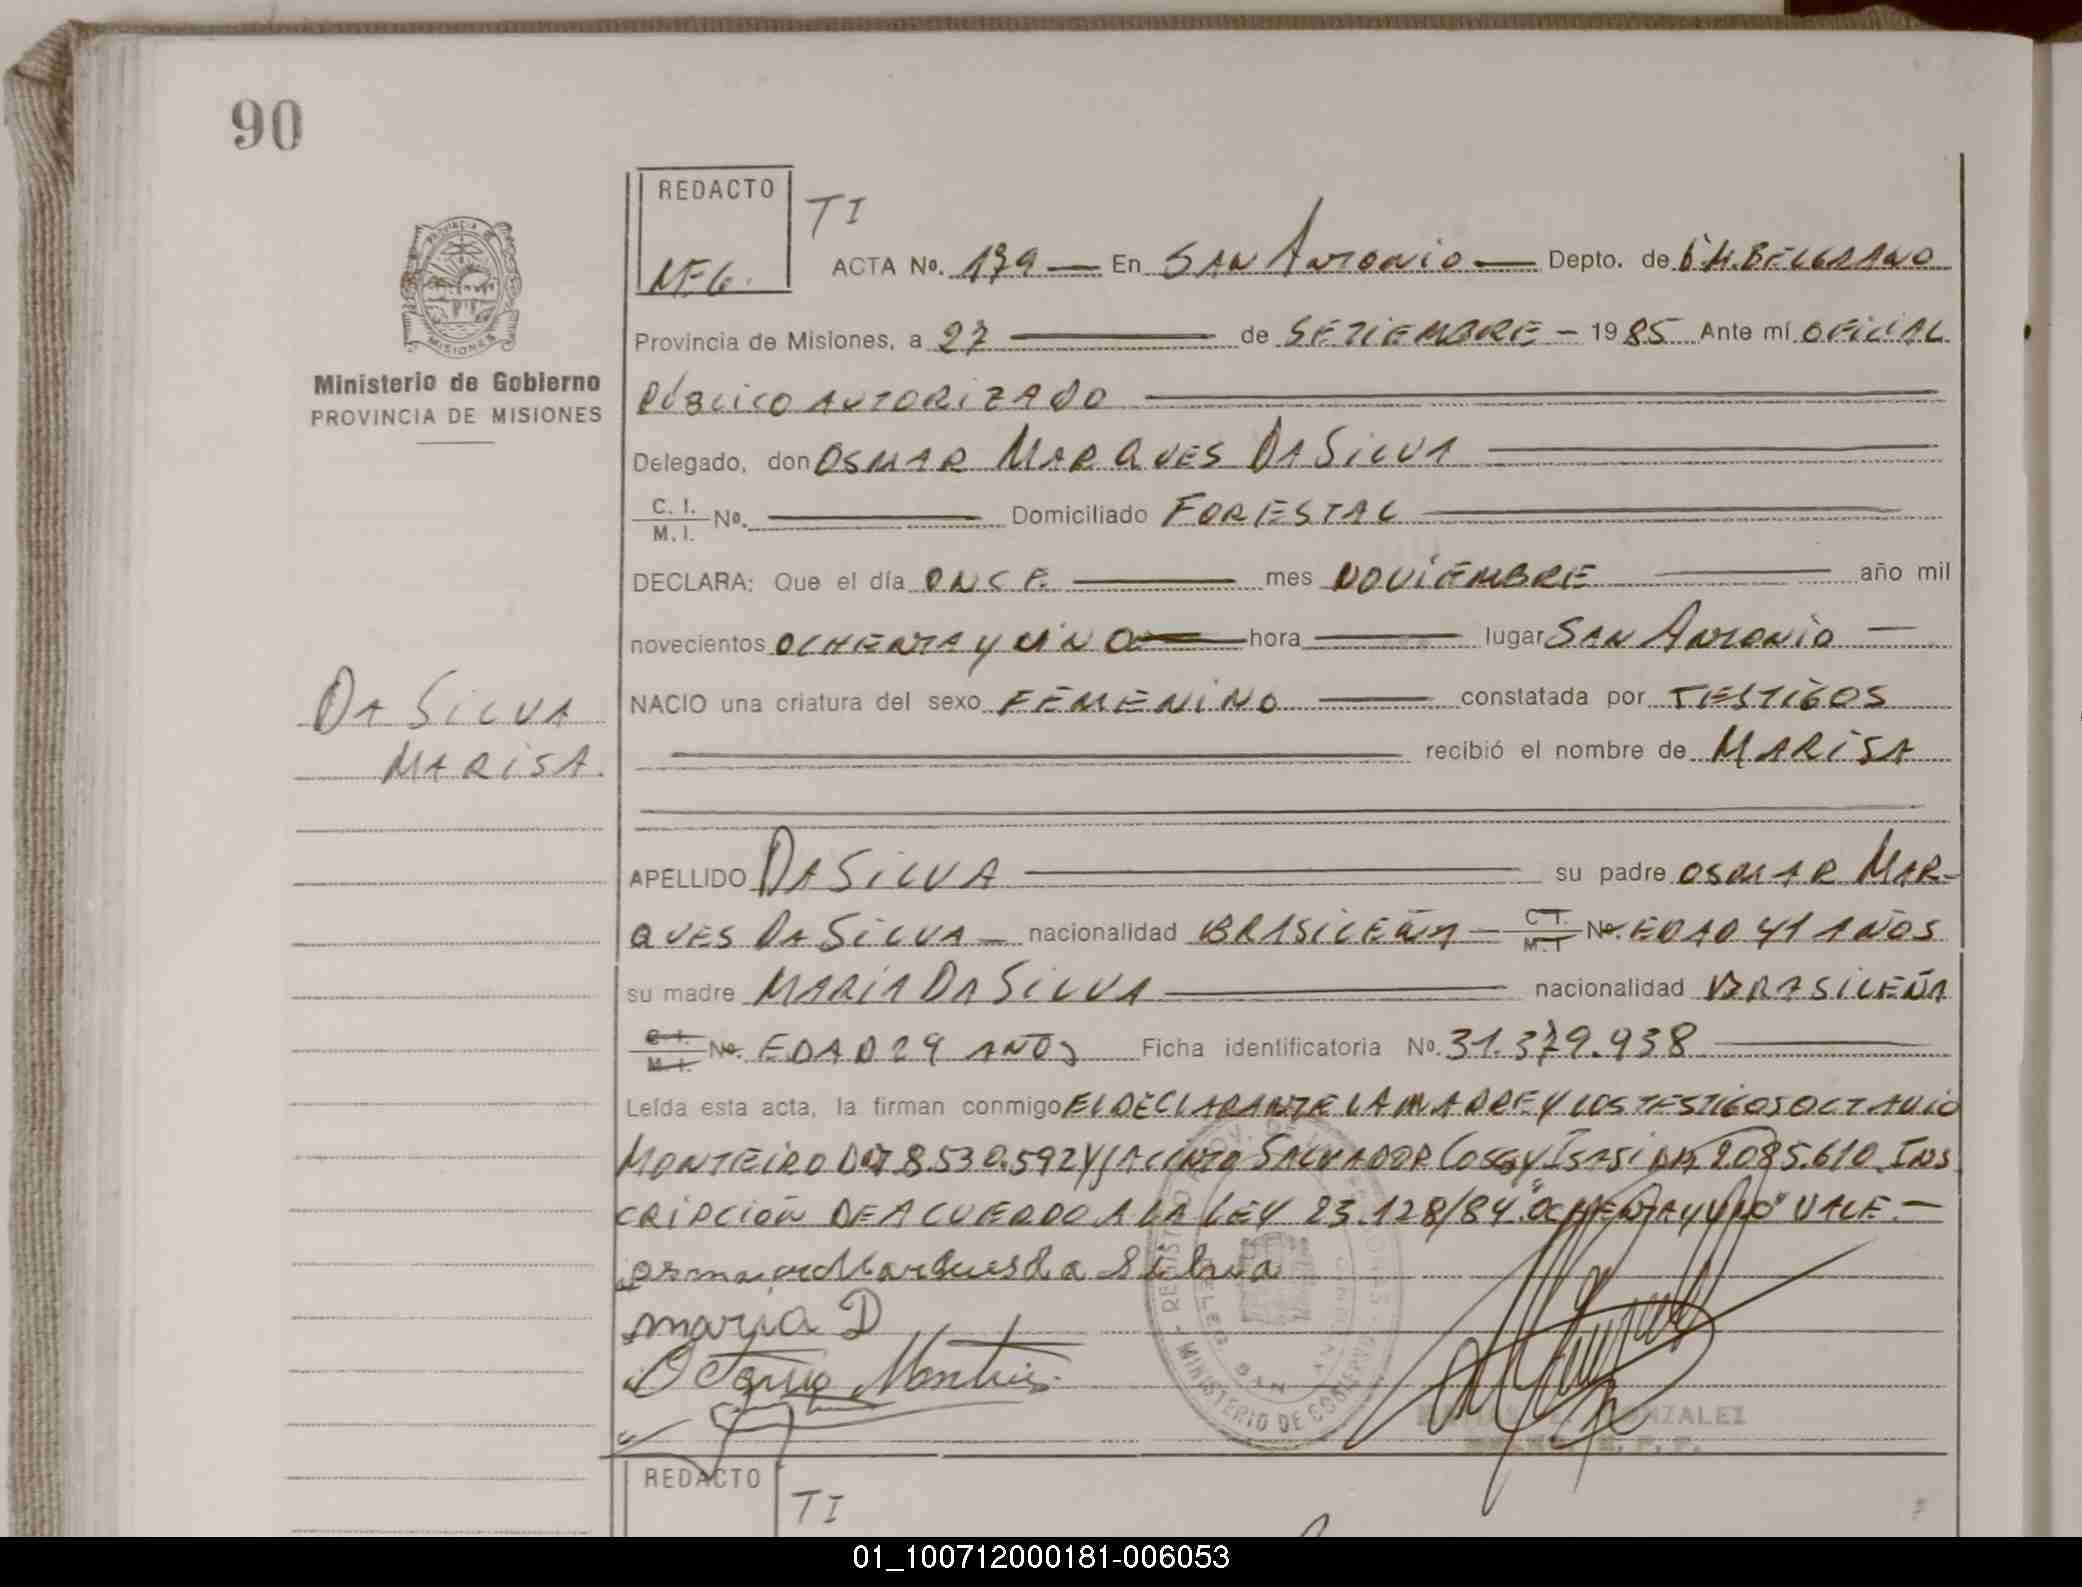 90
REDACTO
TI
ACTA Nº. 179 — En SAN ANTONIO — Depto. de G.M.BELGRANO
Provincia de Misiones, a 27 — de SETIEMBRE - 1985 Ante mí OFICIAL
Ministerio de Gobierno
PROVINCIA DE MISIONES
PÚBLICO AUTORIZADO
Delegado, don OSMAR MARQUES DA SILVA
C. I.
M. I. Nº. — Domiciliado FORESTAL
DECLARA: Que el día ONCE — mes NOVIEMBRE — año mil
novecientos OCHENTA Y UNO — hora — lugar SAN ANTONIO —
DA SILVA
MARISA.
NACIO una criatura del sexo FEMENINO — constatada por TESTIGOS
recibió el nombre de MARISA
APELLIDO DA SILVA — su padre OSMAR MAR-
QUES DA SILVA — nacionalidad BRASILEÑA — C. I. M. I. Nº. EDAD 41 AÑOS
su madre MARIA DA SILVA — nacionalidad BRASILEÑA
C. I. M. I. Nº. EDAD 29 AÑOS Ficha identificatoria Nº. 31.379.938 —
Leída esta acta, la firman conmigo EL DECLARANTE LA MADRE Y LOS TESTIGOS OCTAVIO
MONTEIRO DNI 8.530.592 Y JACINTO SALVADOR ISASI 2085.610 INS
CRIPCIÓN DE ACUERDO A LA LEY 23.128/84 "OCHENTA Y UNO" VALE.—
osmar Marques da Silva
maria D
Octavio Monteiro
MINISTERIO DE GOBIERNO
GONZALEZ
REDACTO
TI
01_100712000181-006053